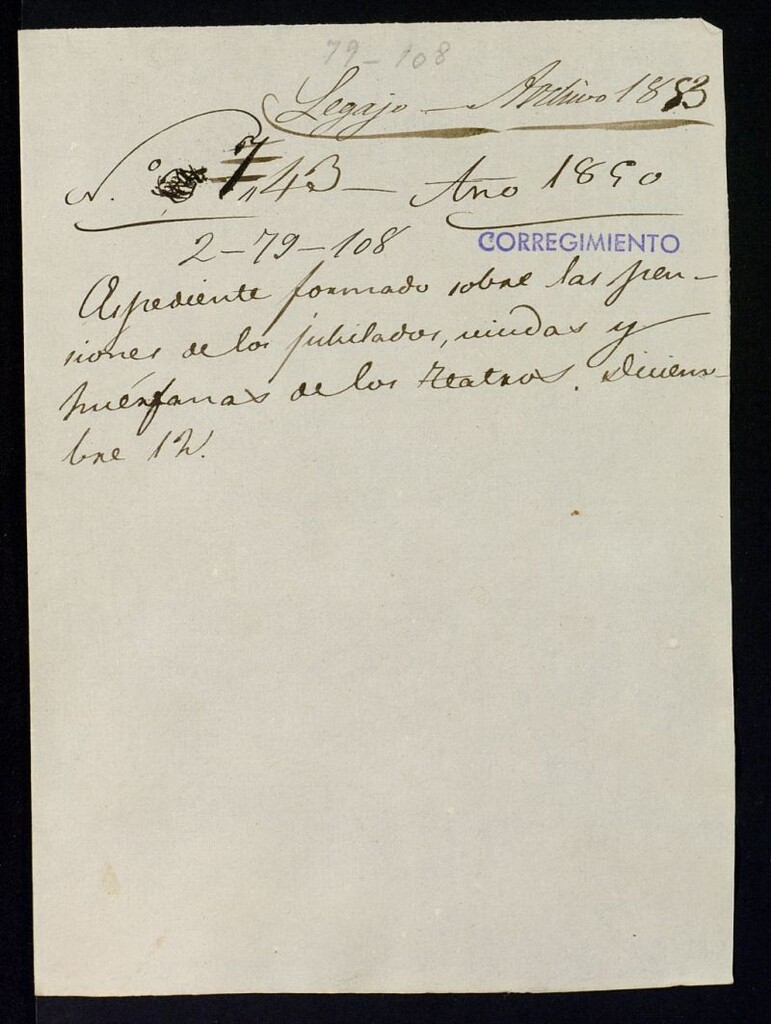 79-108
Legajo - Archivo 1853
N.º 7,,43 - Año 1850
2-79-108
CORREGIMIENTO
Espediente formado sobre las pen-
siones de los jubilados, viudas y
huérfanas de los teatros. Diciem-
bre 12.